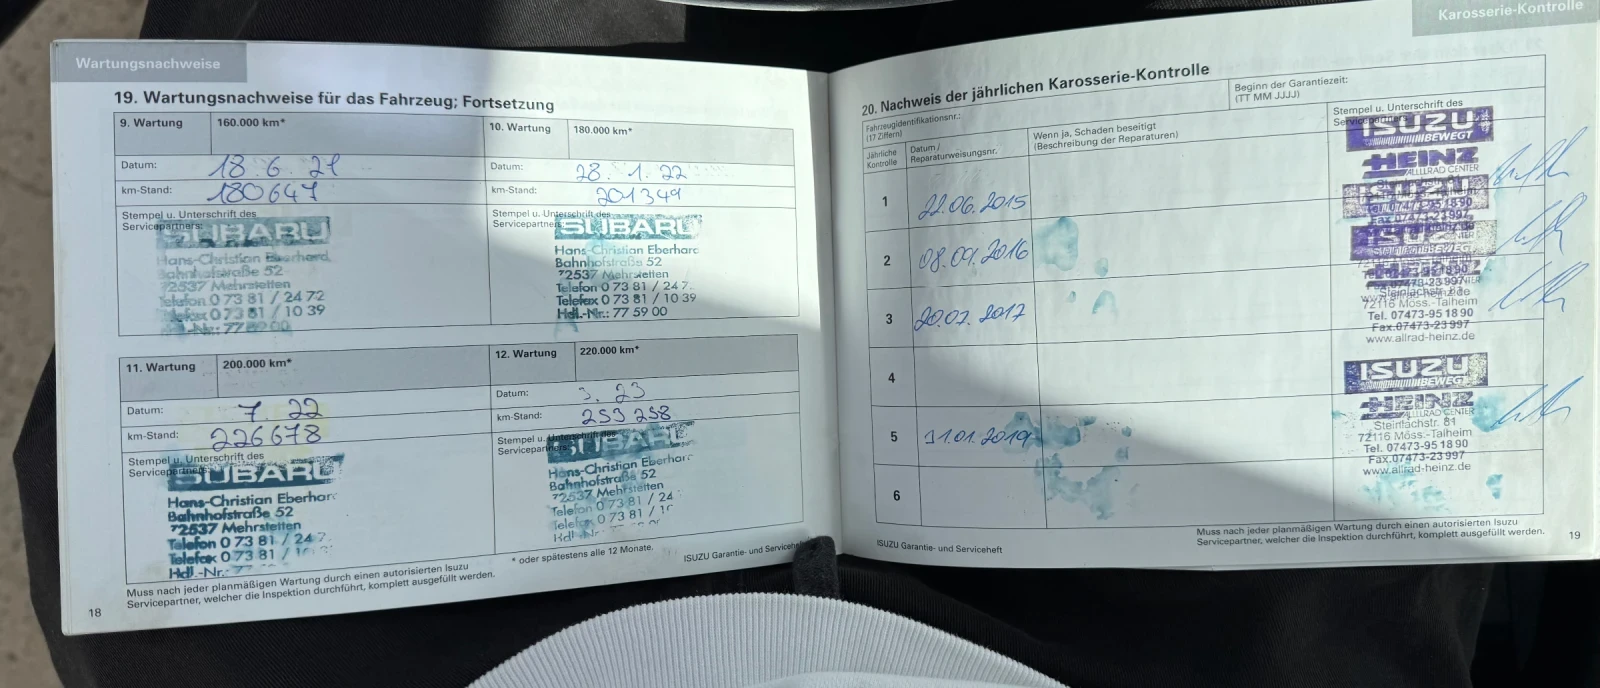 Wartungsnachweise
19. Wartungsnachweise für das Fahrzeug; Fortsetzung
9. Wartung 160.000 km*
Datum: 18.6.21
km-Stand: 180647
Stempel u. Unterschrift des
Servicepartners:
SUBARU
Hans-Christian Eberhard
Bahnhofstraße 52
72537 Mehrstetten
Telefon 0 73 81 / 24 72
Telefax 0 73 81 / 10 39
10. Wartung 180.000 km*
Datum: 28.1.22
km-Stand: 201349
Stempel u. Unterschrift des
Servicepartners
SUBARU
Hans-Christian Eberhard
Bahnhofstraße 52
72537 Mehrstetten
Telefon 0 73 81 / 24 7
Telefax 0 73 81 / 10 39
Hdl.-Nr.: 77 59 00
11. Wartung 200.000 km*
Datum: 7. 22
km-Stand: 226678
Stempel u. Unterschrift des
Servicepartners:
SUBARU
Hans-Christian Eberhar
Bahnhofstraße 52
72537 Mehrstetten
Telefon 0 73 81 / 24 7
Telefax 0 73 81 /
Hdl.-Nr.: 77
12. Wartung 220.000 km*
Datum: 3. 23
km-Stand: 253 258
Stempel u. Unterschrift des
Servicepartners
SUBARU
Hans-Christian Eberhar
Bahnhofstraße 52
72537 Mehrstetten
Telefon 0 73 81 / 24
Telefax 0 73 81 /
* oder spätestens alle 12 Monate.
Muss nach jeder planmäßigen Wartung durch einen autorisierten Isuzu
Servicepartner, welcher die Inspektion durchführt, komplett ausgefüllt werden.
ISUZU Garantie- und Serviceheft
18
Karosserie-Kontrolle
20. Nachweis der jährlichen Karosserie-Kontrolle
Fahrzeugidentifikationsnr.:
(17 Ziffern)
Beginn der Garantiezeit:
(TT MM JJJJ)
Jährliche
Kontrolle
Datum /
Reparaturweisungsnr.
Wenn ja, Schaden beseitigt
(Beschreibung der Reparaturen)
Stempel u. Unterschrift des
Servicepartners
1 22.06.2015
2 08.09.2016
3 20.07.2017
4
5 31.01.2019
6
ISUZU
BEWEGT
HEINZ
ALLLRAD CENTER
ISUZU
ISUZU
BEWEGT
72116 Möss.-Talheim
Tel. 07473-95 18 90
Fax.07473-23 997
www.allrad-heinz.de
ISUZU
BEWEGT
HEINZ
ALLLRAD CENTER
Steinlachstr. 81
72116 Möss.-Talheim
Tel. 07473-95 18 90
Fax.07473-23 997
www.allrad-heinz.de
Muss nach jeder planmäßigen Wartung durch einen autorisierten Isuzu
Servicepartner, welcher die Inspektion durchführt, komplett ausgefüllt werden.
ISUZU Garantie- und Serviceheft
19